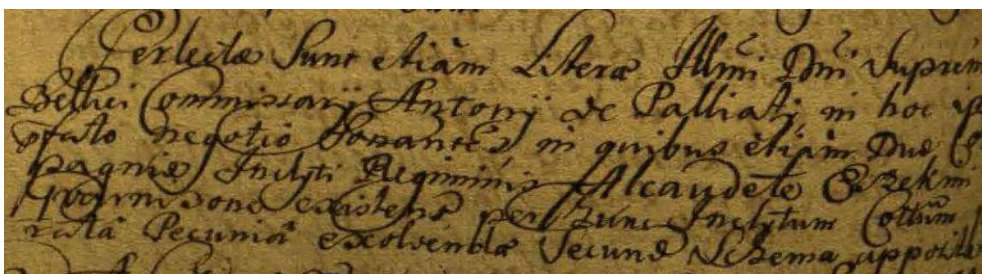 Perlectæ Sunt etiàm Literæ Illmi Dni Suprem
Bellici Commissarij Antonij de Palliati, in hoc
pfato negotio Sonantes in quibus etiàm Duæ
pagniæ Inclyti Regiminis Alcaudete
existens per hunc Inclytum Cottum
Pecuniâ exolvendæ Secund Schema